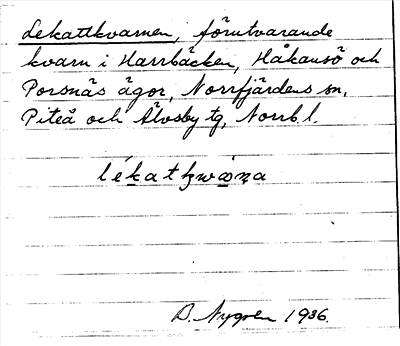 Lekattkvarnen, förutvarande
kvarn i Harrbäcken, Håkansö och
Porsnäs ägor, Norrfjärdens sn,
Piteå och Älvsby tg, Norrb. l.
B. Nygren 1936.